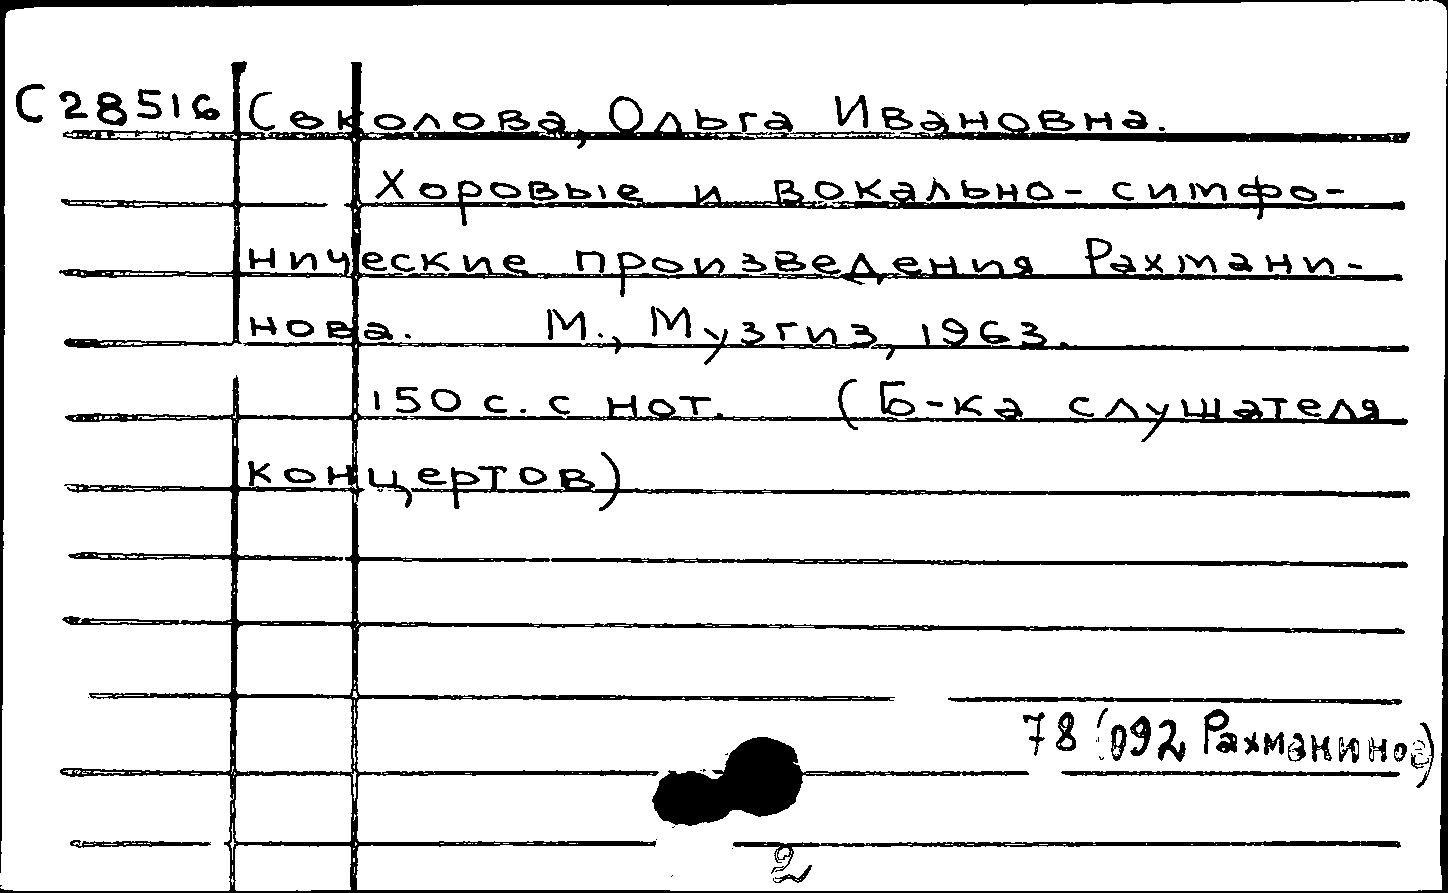 С28516 Соколова, Ольга Ивановна.
Хоровые и вокально-симфо-
нические произведения Рахмани-
нова. М., Музгиз, 1963.
150 с. с нот. (Б-ка слушателя
концертов)
78 (092 Рахманинов)
2